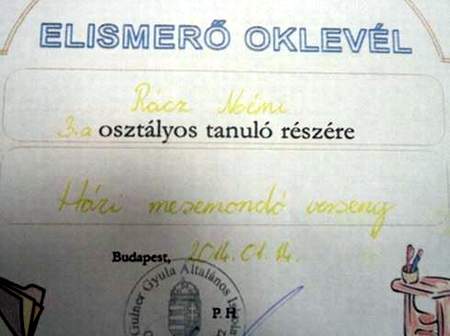 ELISMERŐ OKLEVÉL
Rácz Noémi
3.a osztályos tanuló részére
Házi mesemondó verseny
Budapest, 2014.01.14.
Gulner Gyula Általános Iskola
P. H.